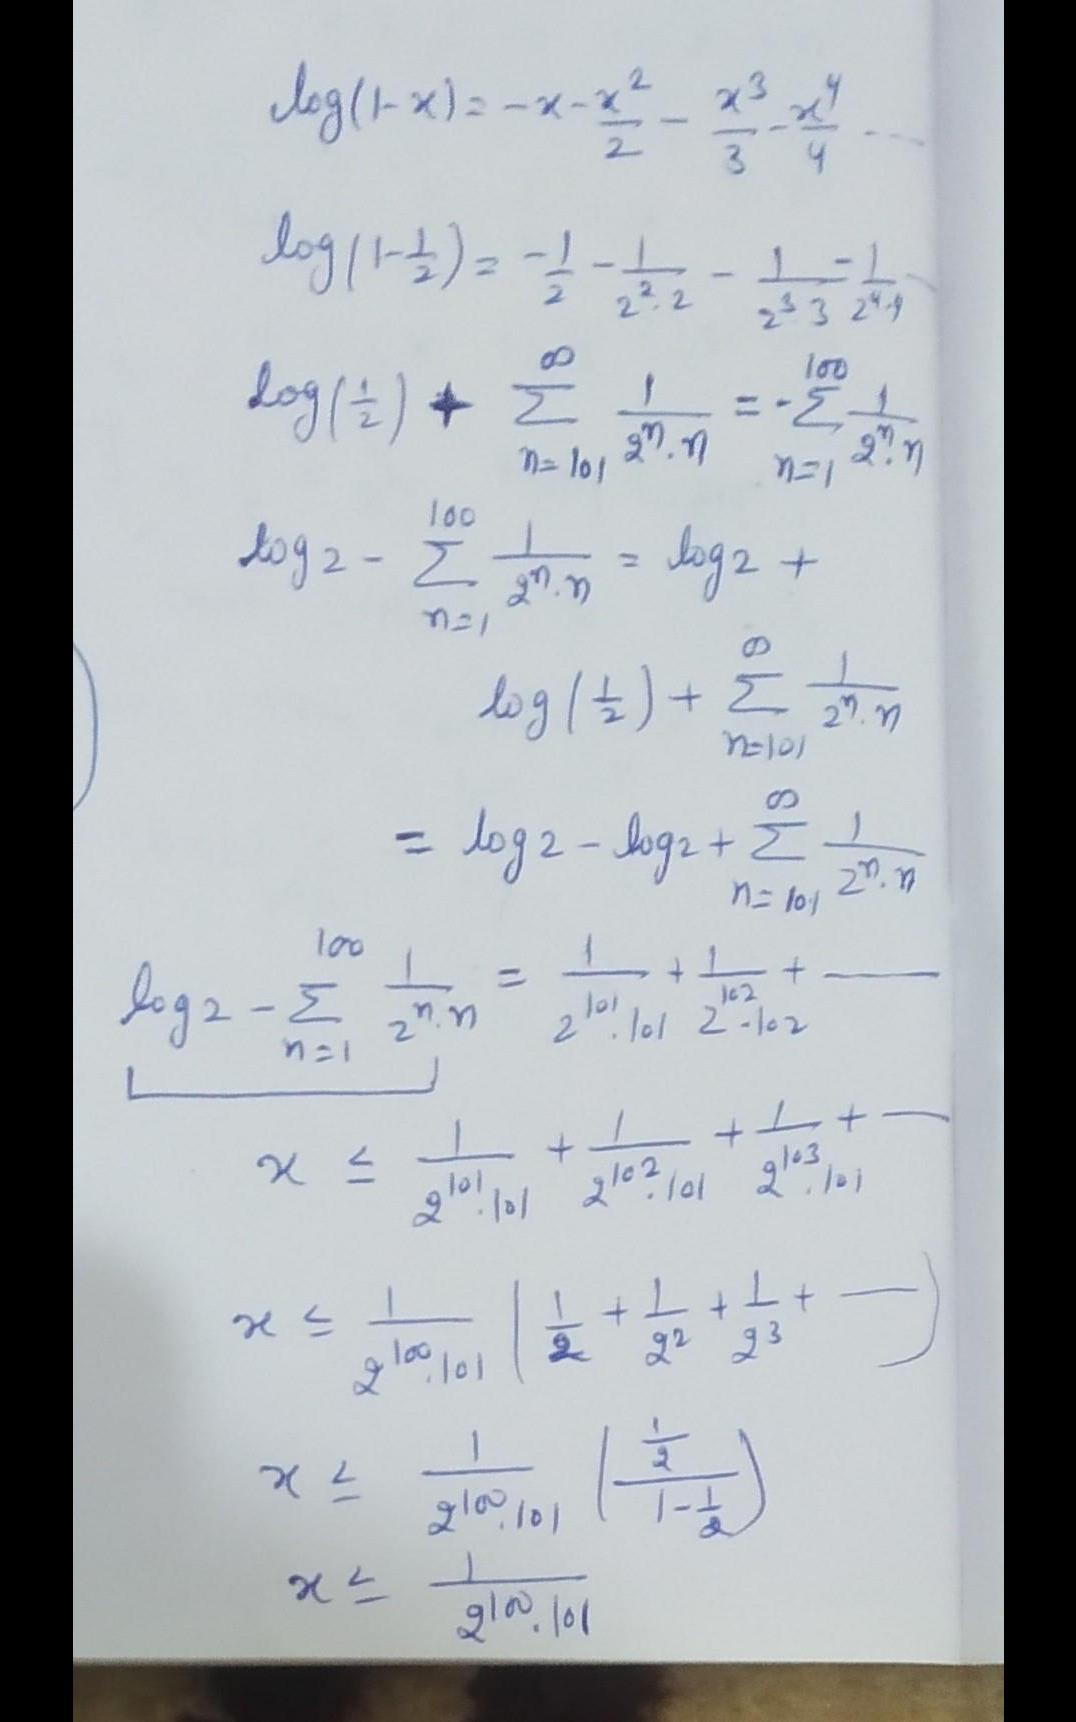 log(1-x) = -x - x²/2 - x³/3 - x⁴/4 ----
log(1-1/2) = -1/2 - 1/(2².2) - 1/(2³.3) - 1/(2⁴.4)
log(1/2) + ∞∑n=101 1/(2ⁿ.n) = -100∑n=1 1/(2ⁿ.n)
log2 - 100∑n=1 1/(2ⁿ.n) = log2 +
log(1/2) + ∞∑n=101 1/(2ⁿ.n)
= log2 - log2 + ∞∑n=101 1/(2ⁿ.n)
log2 - 100∑n=1 1/(2ⁿ.n) = 1/(2¹⁰¹.101) + 1/(2¹⁰².102) + ——
x ≤ 1/(2¹⁰¹.101) + 1/(2¹⁰².101) + 1/(2¹⁰³.101) + —
x ≤ 1/(2¹⁰⁰.101) (1/2 + 1/2² + 1/2³ + —)
x ≤ 1/(2¹⁰⁰.101) ((1/2)/(1-1/2))
x ≤ 1/(2¹⁰⁰.101)